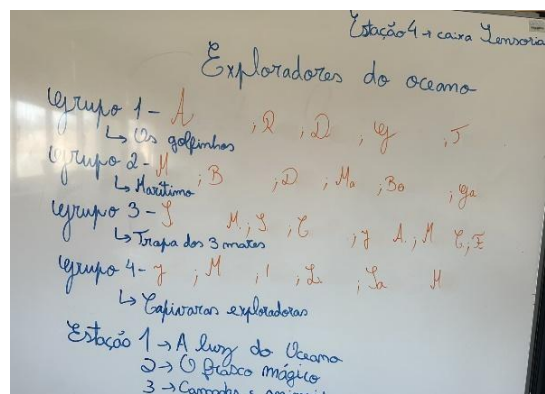 Estação 4 → caixa Sensoria
Exploradores do oceano
Grupo 1 - A ; R ; D ; G ; T
↳ Os golfinhos
Grupo 2 - M ; B ; D ; Ma ; Bo ; Ga
↳ Marítimo
Grupo 3 - J M ; J ; C ; y A ; M C ; E
↳ Trapa dos 3 mares
Grupo 4 - y ; M ; ' ; L ; Ja M
↳ Capivaras exploradoras
Estação 1 → A luz do Oceano
2 → O frasco mágico
3 → Camadas e